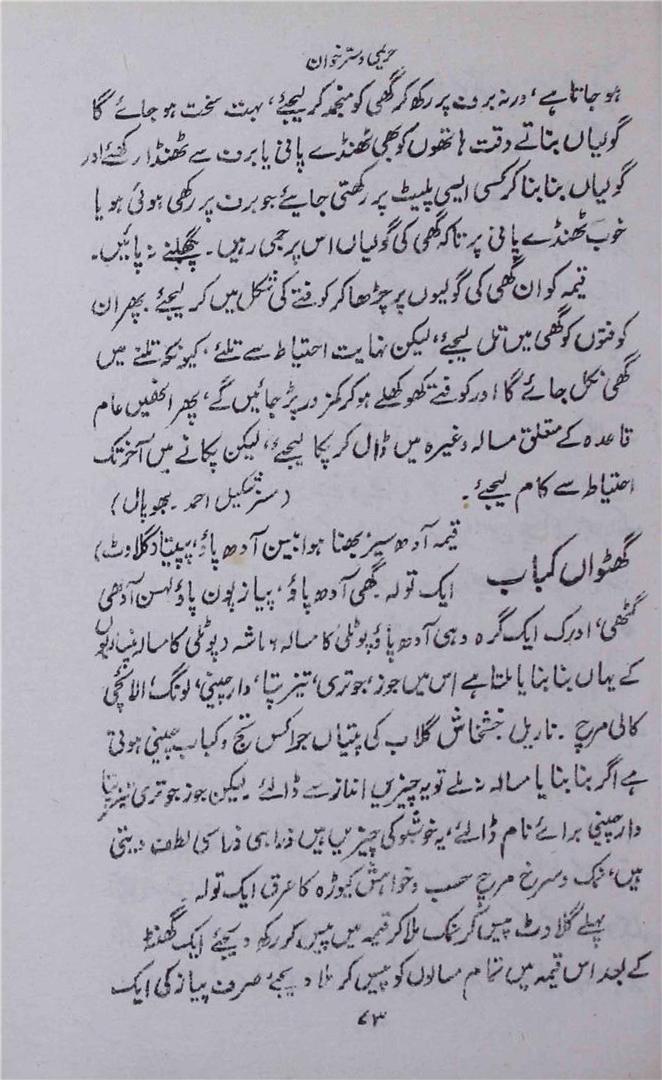 حریمی دستر خوان
ہو جاتا ہے، ورنہ برف پر رکھ کر گھی کو منجمد کر لیجئے، بہت سخت ہو جائے گا
گولیاں بناتے وقت ہاتھوں کو بھی ٹھنڈے پانی یا برف سے ٹھنڈا رکھئے اور
گولیاں بنا بنا کر کسی ایسی پلیٹ پر رکھتی جایئے جو برف پر رکھی ہوئی ہو یا
خوب ٹھنڈے پانی پر تاکہ گھی کی گولیاں اس پر جمی رہیں۔ پگھلنے نہ پائیں۔
قیمہ کو ان گھی کی گولیوں پر چڑھا کر کوفتے کی شکل میں کر لیجئے پھر ان
کوفتوں کو گھی میں تل لیجئے، لیکن نہایت احتیاط سے تلئے، کیونکہ تلنے میں
گھی نکل جائے گا اور کوفتے کھوکھلے ہو کر کمزور پڑ جائیں گے، پھر انھیں عام
قاعدہ کے متعلق مسالہ وغیرہ میں ڈال کر پکا لیجئے، لیکن پکانے میں آخر تک
احتیاط سے کام لیجئے۔ (مسز شکیل احمد۔ بھوپال)
گھٹواں کباب قیمہ آدھ سیر بھنا ہوا بین آدھ پاؤ، پپیتا (گلاوٹ)
ایک تولہ گھی آدھ پاؤ، پیاز پون پاؤ لہسن آدھی
گٹھی، ادرک ایک گرہ دہی آدھ پاؤ پوٹلی کا مسالہ ۶ ماشہ (پوٹلی کا مسالہ پنساریوں
کے یہاں بنا بنایا ملتا ہے اس میں جوز، جوتری، تیز پتا، دارچینی، لونگ، الائچی
کالی مرچ۔ ناریل خشخاش گلاب کی پتیاں جوا کس نچ و کباب چینی ہوتی
ہے اگر بنا بنایا مسالہ نہ ملے تو یہ چیزیں انداز سے ڈالئے۔ لیکن جوز جوتری تیز پتا
دارچینی برائے نام ڈالئے، یہ خوشبو کی چیزیں ہیں ذرا ہی ذرا سی لطف دیتی
ہیں، نمک و سرخ مرچ حسب خواہش کیوڑہ کا عرق ایک تولہ۔
پہلے گلاوٹ پیس کر نمک ملا کر قیمہ میں پیس کر رکھ دیجئے ایک گھنٹہ
کے بعد اس قیمہ میں تمام مسالوں کو پیس کر ملا دیجئے صرف پیاز کی ایک
۷۳